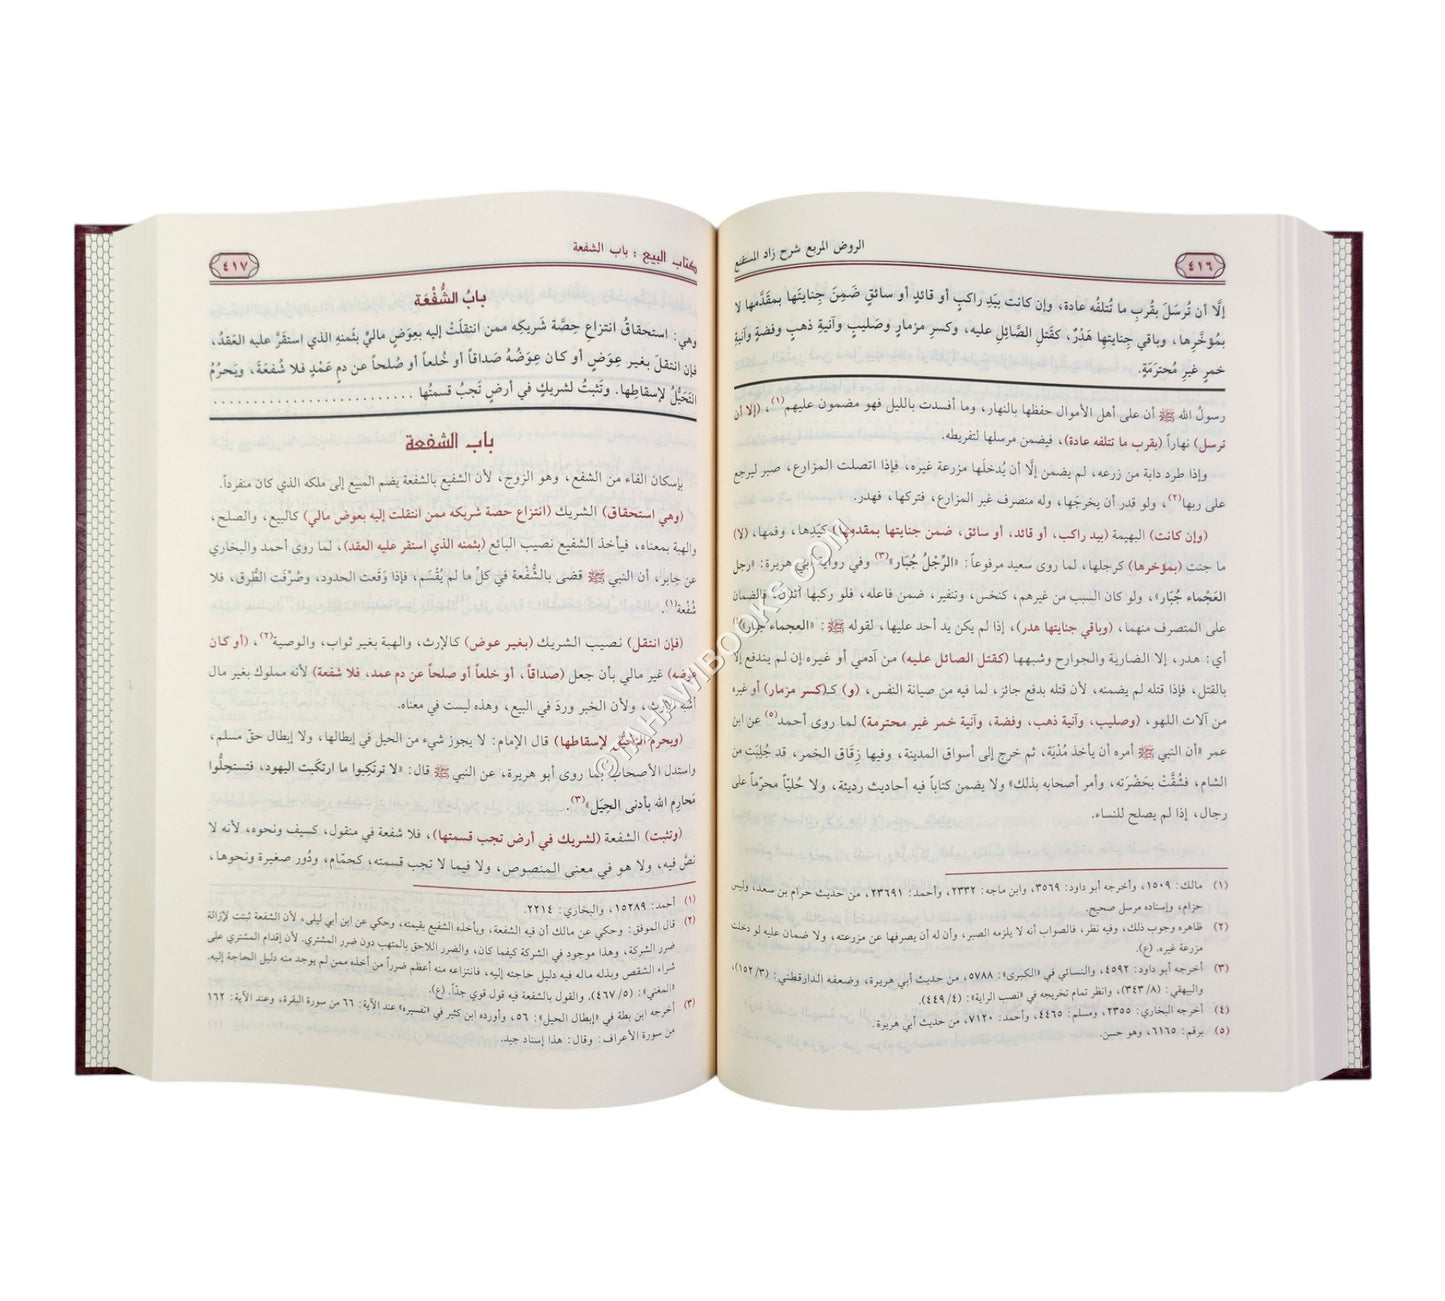 ٤١٦
الروض المربع شرح زاد المستقنع
إلَّا أن تُرسَلَ بقُربِ ما تُتلفُه عادة، وإن كانت بيَدِ راكبٍ أو قائدٍ أو سائقٍ ضَمِنَ جِنايتَها بمقدَّمها لا
بمُؤخَّرِها، وباقي جِنايتِها هَدْرٌ، كقَتلِ الصَّائلِ عليه، وكسرِ مزمارٍ وصَليبٍ وآنيةِ ذهبٍ وفضةٍ وآنيةِ
خمرٍ غيرِ مُحترَمَةٍ.
رسولُ الله ﷺ أن على أهل الأموال حفظها بالنهار، وما أفسدت بالليل فهو مضمون عليهم(١)، (إلا أن
ترسل) نهاراً (بقرب ما تتلفه عادة)، فيضمن مرسلها لتفريطه.
وإذا طرد دابة من زرعه، لم يضمن إلَّا أن يُدخلَها مزرعة غيره، فإذا اتصلت المزارع، صبر ليرجع
على ربها(٢)، ولو قدر أن يخرجَها، وله منصرف غير المزارع، فتركها، فهدر.
(وإن كانت) البهيمة (بيد راكب، أو قائد، أو سائق، ضمن جنايتها بمقدمها) كيَدِها، وفمها، (لا)
ما جنت (بمؤخرها) كرجلها، لما روى سعيد مرفوعاً: «الرِّجْلُ جُبَار»(٣) وفي رواية أبي هريرة: «رجل
العَجْماء جُبَار»، ولو كان السبب من غيرهم، كنخس، وتنفير، ضمن فاعله، فلو ركبها اثنان فالضمان
على المتصرف منهما، (وباقي جنايتها هدر)، إذا لم يكن يد أحد عليها، لقوله ﷺ: «العجماء جُبار»(٤)
أي: هدر، إلا الضارية والجوارح وشبهها (كقتل الصائل عليه) من آدمي أو غيره إن لم يندفع إلا
بالقتل، فإذا قتله لم يضمنه، لأن قتله بدفع جائز، لما فيه من صيانة النفس، (و) كـ(كسر مزمار) أو غيره
من آلات اللهو، (وصليب، وآنية ذهب، وفضة، وآنية خمر غير محترمة) لما روى أحمد(٥) عن ابن
عمر «أن النبي ﷺ أمره أن يأخذ مُدْيَة، ثم خرج إلى أسواق المدينة، وفيها زِقَاق الخمر، قد جُلِبَت من
الشام، فشُقَّتْ بحَضْرَته، وأمر أصحابه بذلك» ولا يضمن كتاباً فيه أحاديث رديئة، ولا حُليّاً محرّماً على
رجال، إذا لم يصلح للنساء.
(١) مالك: ١٥٠٩، وأخرجه أبو داود: ٣٥٦٩، وابن ماجه: ٢٣٣٢، وأحمد: ٢٣٦٩١، من حديث حرام بن سعد، وليس
حزام، وإسناده مرسل صحيح.
(٢) ظاهره وجوب ذلك، وفيه نظر، فالصواب أنه لا يلزمه الصبر، وأن له أن يصرفها عن مزرعته، ولا ضمان عليه لو دخلت
مزرعة غيره. (ع).
(٣) أخرجه أبو داود: ٤٥٩٢، والنسائي في «الكبرى»: ٥٧٨٨، من حديث أبي هريرة، وضعفه الدارقطني: (٣/ ١٥٢)،
والبيهقي: (٨/ ٣٤٣)، وانظر تمام تخريجه في «نصب الراية»: (٤/ ٤٤٩).
(٤) أخرجه البخاري: ٢٣٥٥، ومسلم: ٤٤٦٥، وأحمد: ٧١٢٠، من حديث أبي هريرة.
(٥) برقم: ٦١٦٥، وهو حسن.
كتاب البيع : باب الشفعة
٤١٧
بابُ الشُّفْعَة
وهي: استحقاقُ انتزاعِ حِصَّة شَريكِه ممن انتقلَتْ إليه بعِوَضٍ ماليٍّ بثمنهِ الذي استقرَّ عليه العَقدُ،
فإن انتقلَ بغير عِوَضٍ أو كان عِوَضُهُ صَداقاً أو خُلعاً أو صُلحاً عن دمٍ عَمْدٍ فلا شُفعَةَ، ويَحرُمُ
التَّحَيُّلُ لإسقاطِها. وتَثبتُ لشريكٍ في أرضٍ تَجبُ قسمتُها ..........................
باب الشفعة
بإسكان الفاء من الشفع، وهو الزوج، لأن الشفيع بالشفعة يضم المبيع إلى ملكه الذي كان منفرداً.
(وهي استحقاق) الشريك (انتزاع حصة شريكه ممن انتقلت إليه بعوض مالي) كالبيع، والصلح،
والهبة بمعناه، فيأخذ الشفيع نصيب البائع (بثمنه الذي استقر عليه العقد)، لما روى أحمد والبخاري
عن جابر، أن النبي ﷺ قضى بالشُّفْعة في كلِّ ما لم يُقْسَم، فإذا وَقَعت الحدود، وصُرِّفَت الطُّرق، فلا
شُفْعة(١).
(فإن انتقل) نصيب الشريك (بغير عوض) كالإرث، والهبة بغير ثواب، والوصية(٢)، (أو كان
عوضه) غير مالي بأن جعل (صداقاً، أو خلعاً أو صلحاً عن دم عمد، فلا شفعة) لأنه مملوك بغير مال
أشبه الإرث، ولأن الخبر وردَ في البيع، وهذه ليست في معناه.
(ويحرم التحيُّل لإسقاطها) قال الإمام: لا يجوز شيء من الحيل في إبطالها، ولا إبطال حقّ مسلم،
واستدل الأصحاب بما روى أبو هريرة، عن النبي ﷺ قال: «لا ترتَكِبوا ما ارتكَبت اليهود، فتستحِلُّوا
مَحارِمَ الله بأدنى الحِيَل»(٣).
(وتثبت) الشفعة (لشريك في أرض تجب قسمتها)، فلا شفعة في منقول، كسيف ونحوه، لأنه لا
نصَّ فيه، ولا هو في معنى المنصوص، ولا فيما لا تجب قسمته، كحمّام، ودُور صغيرة ونحوها،
(١) أحمد: ١٥٢٨٩، والبخاري: ٢٢١٤.
(٢) قال الموفق: وحكي عن مالك أن فيه الشفعة، ويأخذه الشفيع بقيمته، وحكي عن ابن أبي ليلى، لأن الشفعة ثبتت لإزالة
ضرر الشركة، وهذا موجود في الشركة كيفما كان، والضرر اللاحق بالمتهب دون ضرر المشتري. لأن إقدام المشتري على
شراء الشقص وبذله ماله فيه دليل حاجته إليه، فانتزاعه منه أعظم ضرراً من أخذه ممن لم يوجد منه دليل الحاجة إليه.
«المغني»: (٥/ ٤٦٧). والقول بالشفعة فيه قول قوي جدًّا. (ع).
(٣) أخرجه ابن بطة في «إبطال الحيل»: ٥٦، وأورده ابن كثير في «تفسيره» عند الآية: ٦٦ من سورة البقرة، وعند الآية: ١٦٢
من سورة الأعراف: وقال: هذا إسناد جيد.
©TAHAWIBOOKS.COM